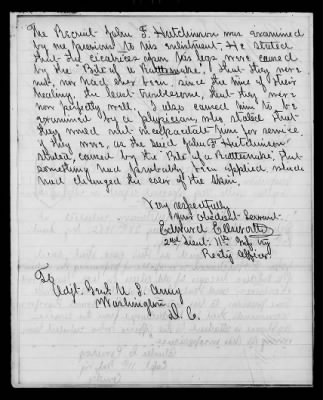 The Recruit John F. Hutchinson was examined
by me previous to his enlistment. He stated
that the cicatrices upon his legs were caused
by the "Bite of a Rattlesnake," that they were
not, nor had they been, since the time of their
healing, the least troublesome, that they were
now perfectly well. I also caused him to be
examined by a physician, who stated that
they would not incapacitate him for service
if they were, as the said John F. Hutchinson
stated, caused by the "Bite of a Rattlesnake", that
something had probably been applied which
had changed the color of the skin.
Very respectfully
Your Obedient Servant
Edward Ellsworth
2nd Lieut. 11th Inf'try
Rectg Officer
To
Adjt. Genl. U. S. Army
Washington
D. C.